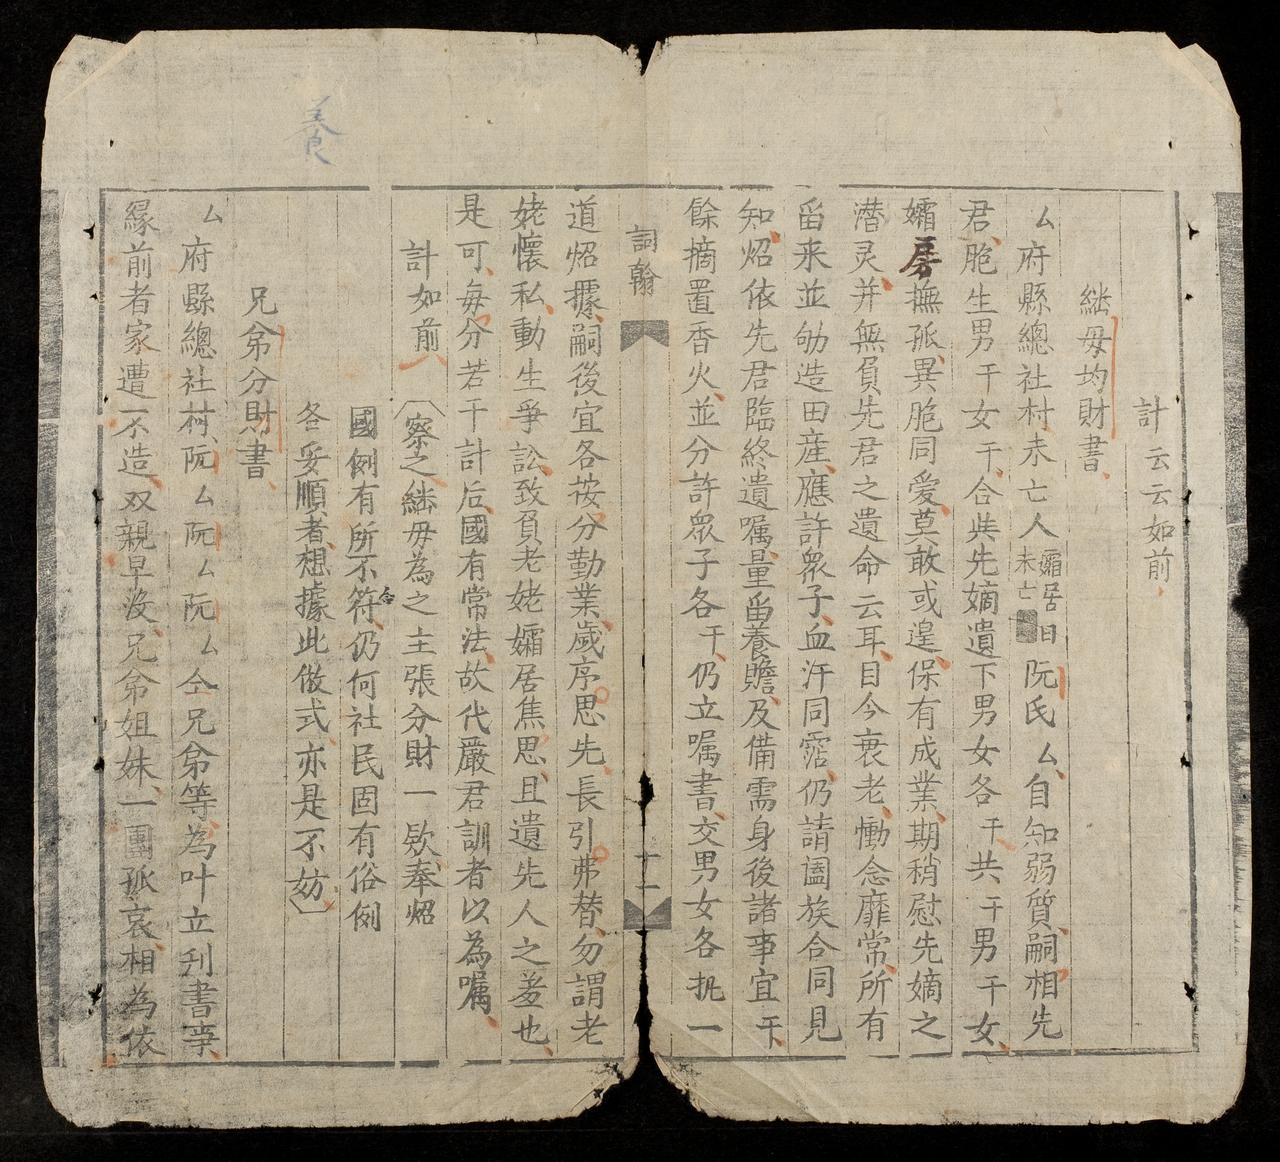 計云云如前
継母均財書
厶府縣總社村未亡人孀居日未亡阮氏厶自知弱質嗣相先
君胞生男干女干合共先嫡遺下男女各干共干男干女
孀房撫孤異胞同愛莫敢或遑保有成業期稍慰先嫡之
潜灵并無負先君之遺命云耳目今衰老慟念靡常所有
畱来並刱造田産應許眾子血汗同霑仍請闔族合同見
知炤依先君臨終遺嘱量畱養贍及備需身後諸事宜干
餘摘置香火並分許眾子各干仍立嘱書交男女各執一
詞翰
十一
道炤據嗣後宜各按分勤業歲序思先長引弗替勿謂老
姥懷私動生爭訟致負老姥孀居焦思且遺先人之羞也
是可每分若干計后國有常法故代嚴君訓者以為嘱
計如前
察之継母為之主張分財一欵奉炤
國例有所不符合仍何社民固有俗例
各妥順者想據此做式亦是不妨
兄弟分財書
厶府縣總社村阮厶阮厶阮厶仝兄弟等為叶立刋書事
緣前者家遭不造双親早沒兄弟姐妹一團孤哀相為依
養